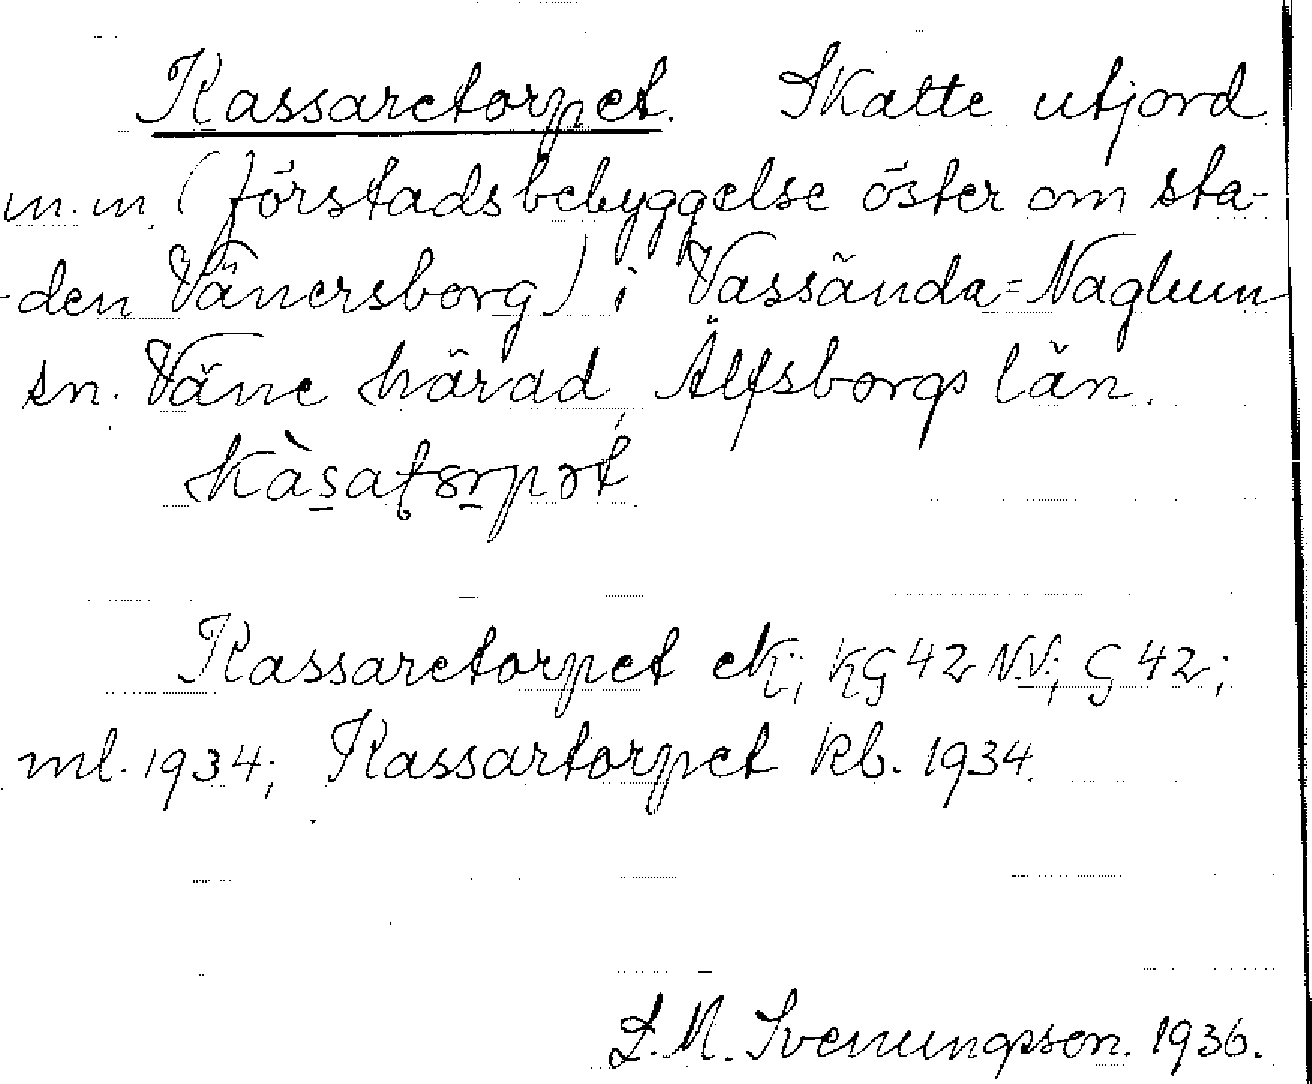 Kassaretorpet. Skatte utjord
m.m. (förstadsbebyggelse öster om sta-
den Vänersborg) i Vassända=Naglum
sn. Väne härad, Älfsborgs län.
kàsatorpət
Kassaretorpet eK; KG 42 NV; G 42;
ml. 1934; Kassartorpet kb. 1934.
L.M. Svenungsson. 1936.